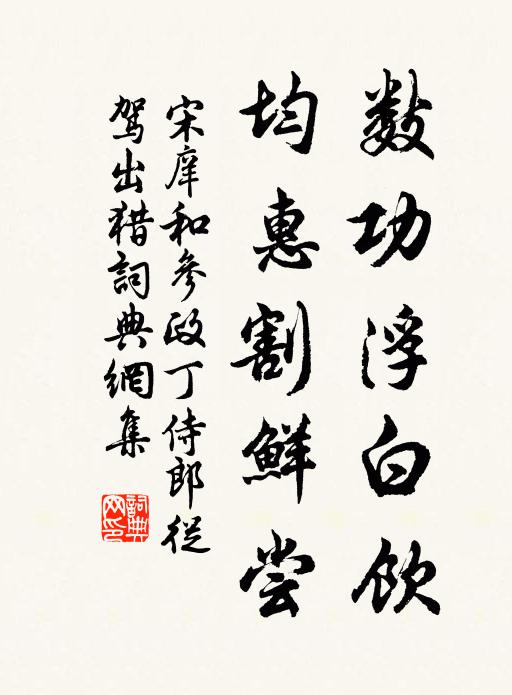 数功浮白饮
均惠割鲜尝
宋庠和参政丁侍郎従
驾出猎詞典網集
詞典网印